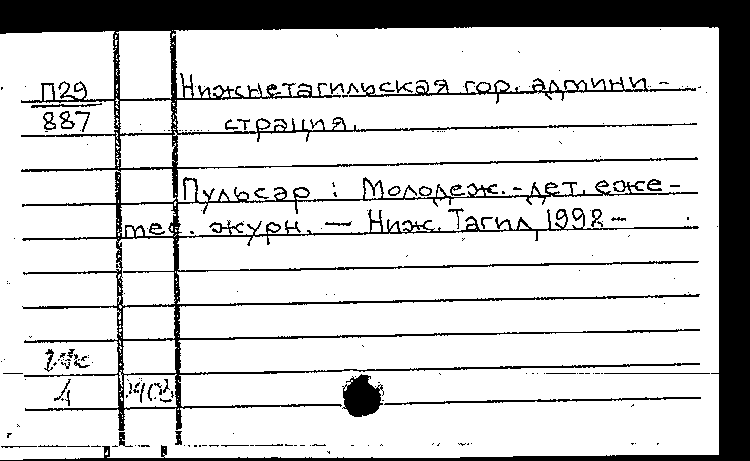 П29
887
Нижнетагильская гор. админи-
страция.
Пульсар : Молодеж.-дет. еже-
мес. журн. — Ниж. Тагил, 1998-